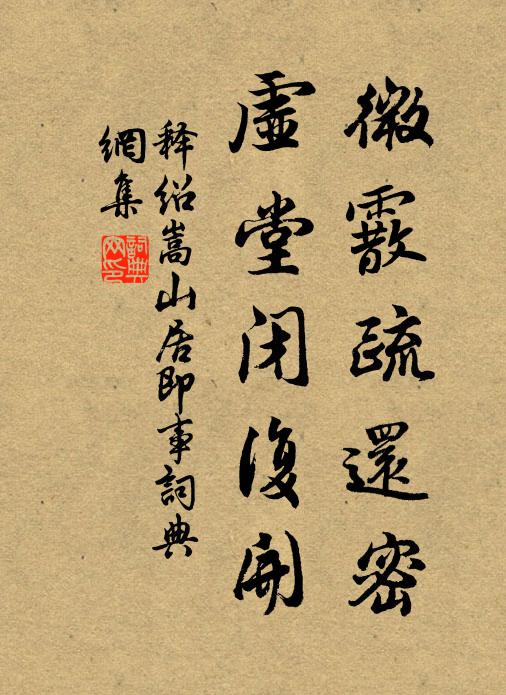 微霰疏還密
虛堂閉復開
釋紹嵩山居即事詞典
網集
詞典網印